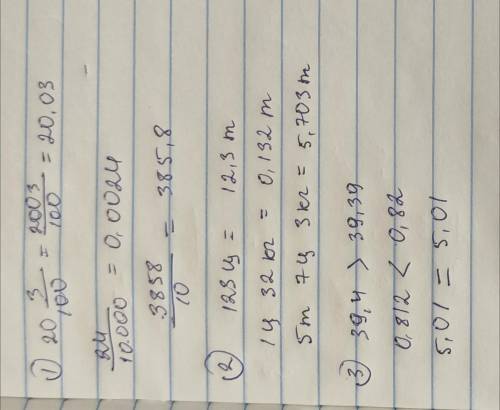 1) 20 3/100 = 2003/100 = 20,03
24/10.000 = 0,0024
3858/10 = 385,8
2) 123 ц = 12,3 т
1ц 32 кг = 0,132 т
5т 7ц 3кг = 5,703 т
3) 39,4 > 39,39
0,812 < 0,82
5,01 = 5,01